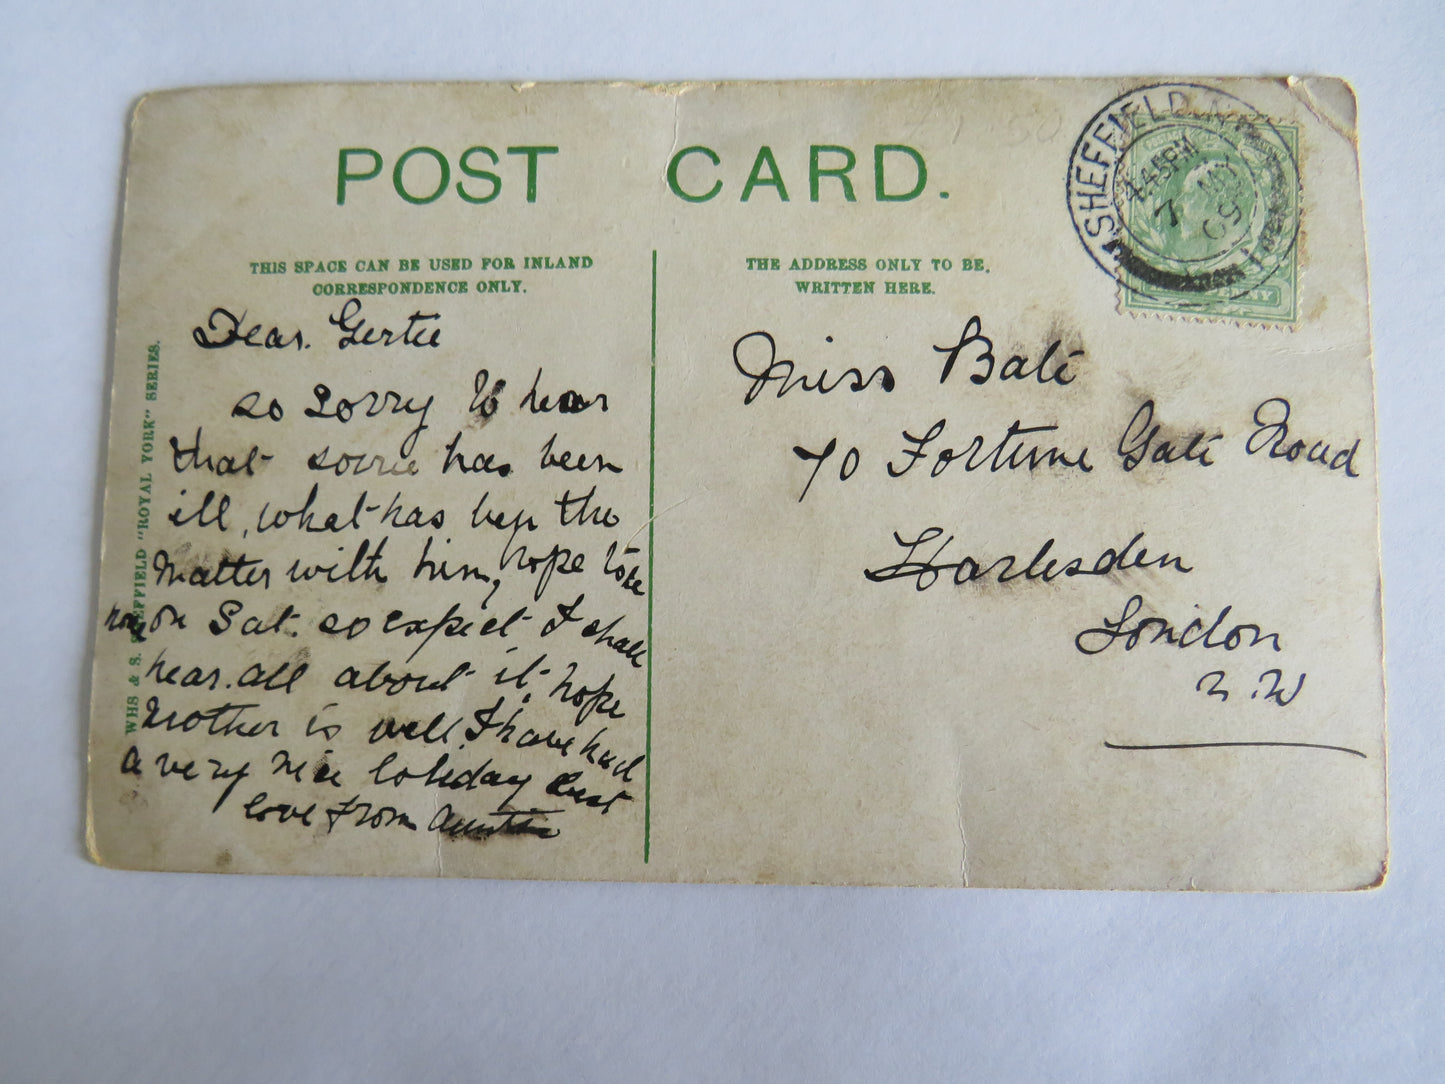 POST CARD.
THIS SPACE CAN BE USED FOR INLAND
CORRESPONDENCE ONLY.
THE ADDRESS ONLY TO BE
WRITTEN HERE.
WHS & S. SHEFFIELD "ROYAL YORK" SERIES.
SHEFFIELD
7 MY
09
Dear. Gertie
so sorry to hear
that has been
ill, what has been the
matter with him, hope to be
home on Sat. so expect I shall
hear. all about it, hope
Mother is well. I have had
a very nice holiday best
love from Auntie
Miss Bate
70 Fortune Gate Road
Harlesden
London
N.W